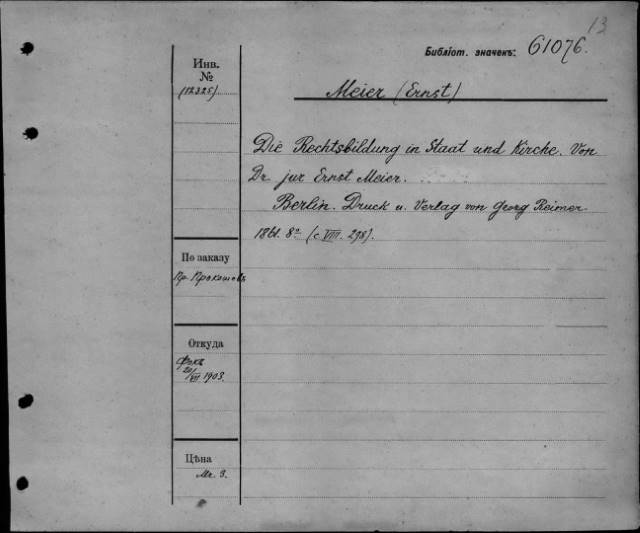 13
Библіот. значекъ: 61076.
Инв.
№
(12325)
Meier (Ernst)
Die Rechtsbildung in Staat und Kirche. Von
Dr jur Ernst Meier.
Berlin. Druck u. Verlag von Georg Reimer.
1861. 8° (c. VIII. 298).
По заказу
Пр.
Откуда
20/VII 1903.
Цѣна
Mr. 3.